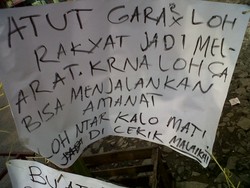 ATUT GARA² LOH
RAKYAT JADI MEL-
ARAT. KRNA LOH GA
BISA MENJALANKAN
AMANAT
LOH NTAR KALO MATI
DI CEKIK MALAIKAT